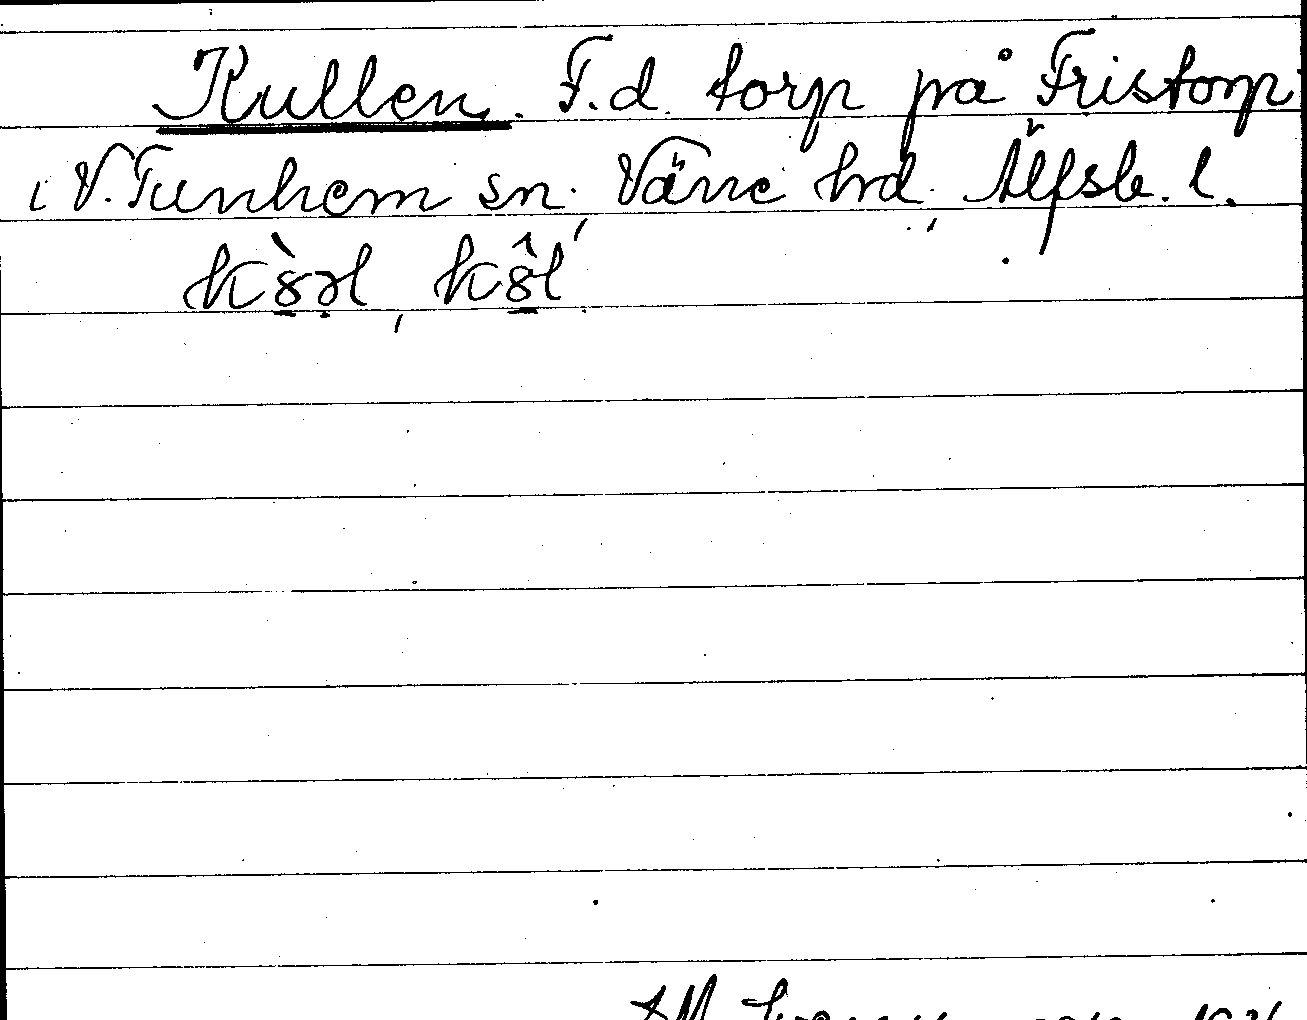 Kullen. F.d. torp på Fristorp
i V. Tunhem sn, Väne hd, Älfsb. l.
k8̀əl, k8̂l